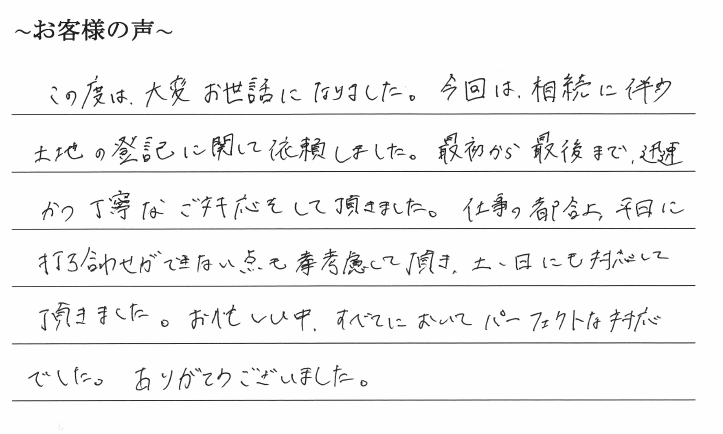 ~お客様の声~
この度は、大変お世話になりました。今回は、相続に伴う
土地の登記に関して依頼しました。最初から最後まで、迅速
かつ丁寧なご対応をして頂きました。仕事の都合上、平日に
打ち合わせができない点も考慮して頂き、土・日にも対応して
頂きました。お忙しい中、すべてにおいてパーフェクトな対応
でした。ありがとうございました。